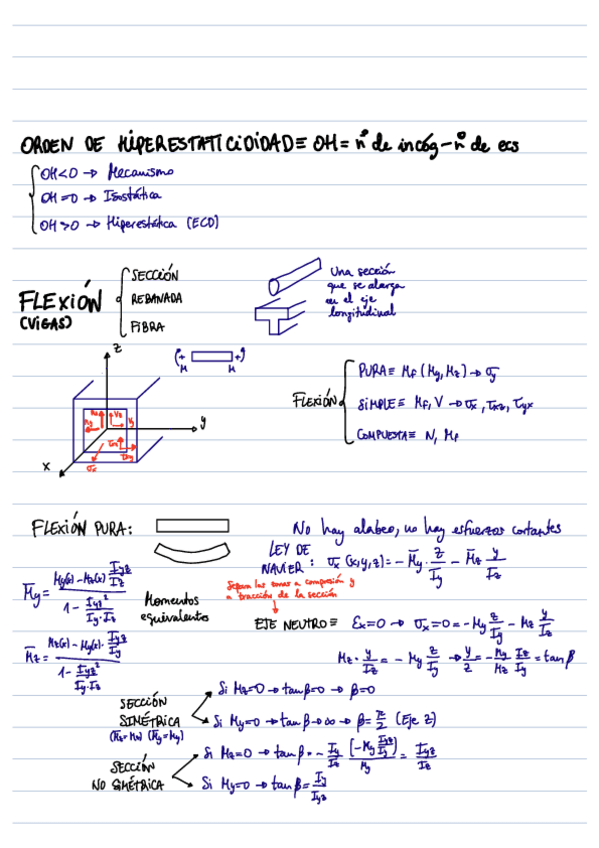 ORDEN DE HIPERESTATICIDIDAD ≡ OH = nº de incóg - nº de ecs
OH < 0 → Mecanismo
OH = 0 → Isostática
OH > 0 → Hiperestática (ECD)
FLEXIÓN
(VIGAS)
SECCIÓN
REBANADA
FIBRA
Una sección
que se alarga
en el eje
longitudinal
z
M M
y
x
σx
FLEXIÓN
PURA ≡ Mf (My, Mz) → σy
SIMPLE ≡ Mf, V → σx, τxz, τyx
COMPUESTA ≡ N, Mf
FLEXIÓN PURA:
No hay alabeo, no hay esfuerzos cortantes
LEY DE
NAVIER: σx (x,y,z) = -M̄y · z/Iy - M̄z y/Iz
M̄y = (My(x) - Mz(x) Iyz/Iz) / (1 - Iyz²/(Iy·Iz))
M̄z = (Mz(x) - My(x) · Iyz/Iy) / (1 - Iyz²/(Iy·Iz))
Momentos
equivalentes
Separa las zonas a compresión y
a tracción de la sección
EJE NEUTRO ≡ Ɛx = 0 → σx = 0 = -My z/Iy - Mz y/Iz
Mz · y/Iz = - My z/Iy → y/z = - My/Mz Iz/Iy = tan β
SECCIÓN
SIMÉTRICA
(M̄z = Mz) (M̄y = My)
Si Mz = 0 → tan β = 0 → β = 0
Si My = 0 → tan β → ∞ → β = π/2 (Eje z)
SECCIÓN
NO SIMÉTRICA
Si Mz = 0 → tan β = - Iy/Iz [-My Iyz/Iy]/My = Iyz/Iz
Si My = 0 → tan β = Iy/Iyz